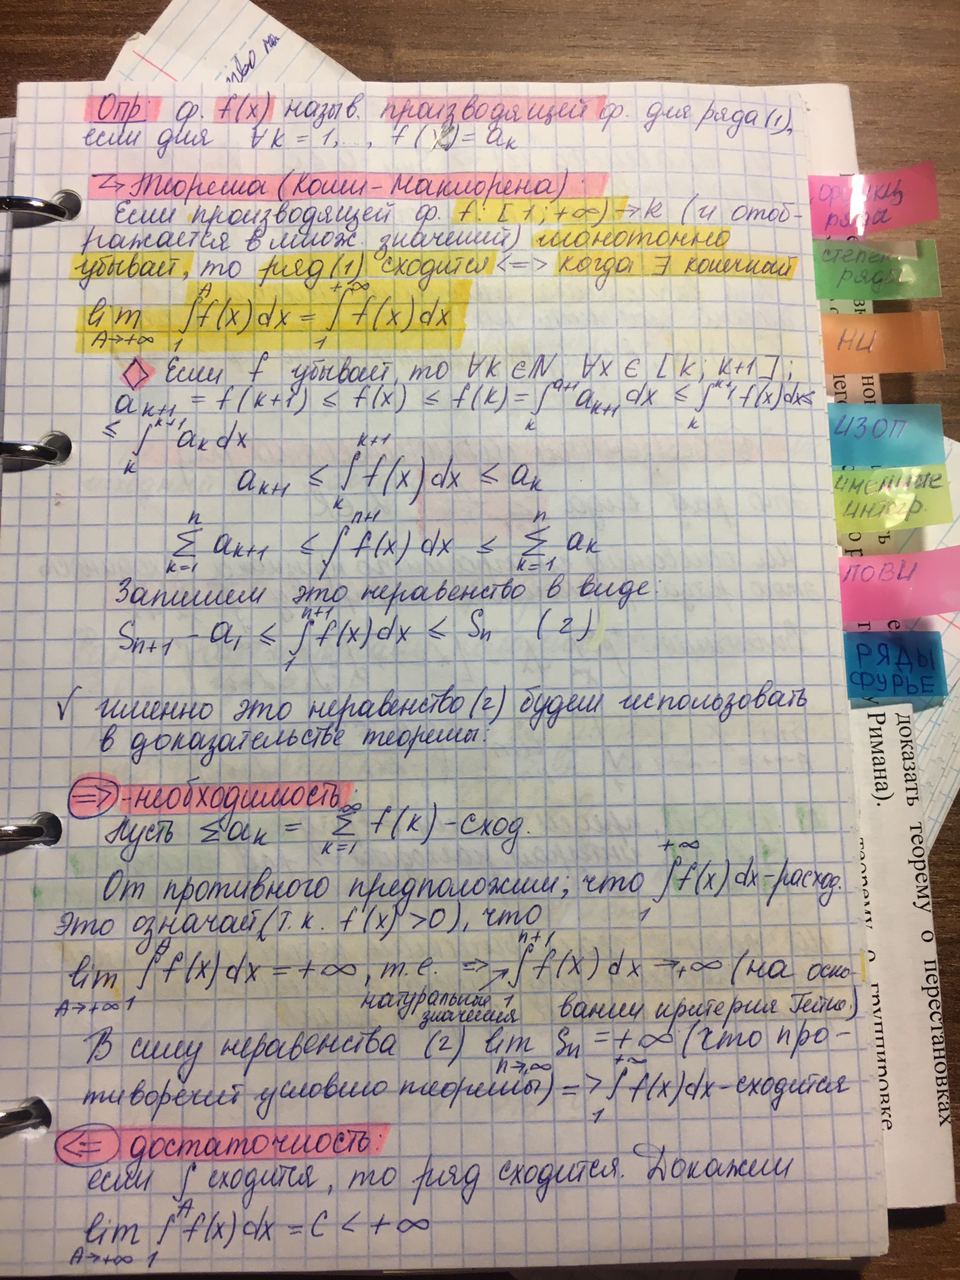 Опр: ф. f(x) назыв. производящей ф. для ряда (1),
если для ∀k = 1,..., f(k) = aₖ
Теорема (Коши-Маклорена):
Если производящей ф. f: [1; +∞) → R (и отоб-
ражается в множ. значений) монотонно
убывает, то ряд (1) сходится <=> когда ∃ конечный
lim A→+∞ ∫₁ᴬ f(x) dx = ∫₁^{+∞} f(x) dx
Если f убывает, то ∀k ∈ N, ∀x ∈ [k; k+1];
aₖ₊₁ = f(k+1) ≤ f(x) ≤ f(k) = ∫ₖ^{k+1} aₖ₊₁ dx ≤ ∫ₖ^{k+1} f(x) dx ≤
≤ ∫ₖ^{k+1} aₖ dx
aₖ₊₁ ≤ ∫ₖ^{k+1} f(x) dx ≤ aₖ
∑_{k=1}^{n} aₖ₊₁ ≤ ∫₁^{n+1} f(x) dx ≤ ∑_{k=1}^{n} aₖ
Запишем это неравенство в виде:
Sₙ₊₁ - a₁ ≤ ∫₁^{n+1} f(x) dx ≤ Sₙ (2)
√ именно это неравенство (2) будем использовать
в доказательстве теоремы:
=> -необходимость:
Пусть ∑aₖ = ∑_{k=1}^{∞} f(k) - сход.
От противного предположим; что ∫₁^{+∞} f(x) dx - расход.
Это означай (т.к. f(x) > 0), что
lim A→+∞ ∫₁ᴬ f(x) dx = +∞, т.е. => ∫₁^{n+1} f(x) dx → +∞ (на осно-
натуральные значения вании критерия Гейне)
В силу неравенства (2) lim n→∞ Sₙ = +∞ (что про-
тиворечит условию теоремы) => ∫₁^{+∞} f(x) dx - сходится
<= достаточность:
если ∫ сходится, то ряд сходится. Докажем
lim A→+∞ ∫₁ᴬ f(x) dx = C < +∞
ряда
степен
ряды
НИ
ИЗОП
интегр.
ПОВИ
РЯДЫ
ФУРЬЕ
доказать теорему о перестановках
Римана).
о группировке